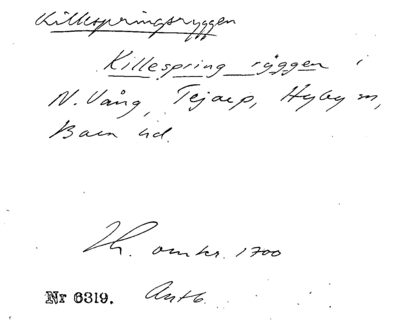 Killespringsryggen
Killespring ryggen i
N. Vång, Tejarp, Hyby m,
Bara hd.
Th. omkr. 1700
Nr 6319. Antb.